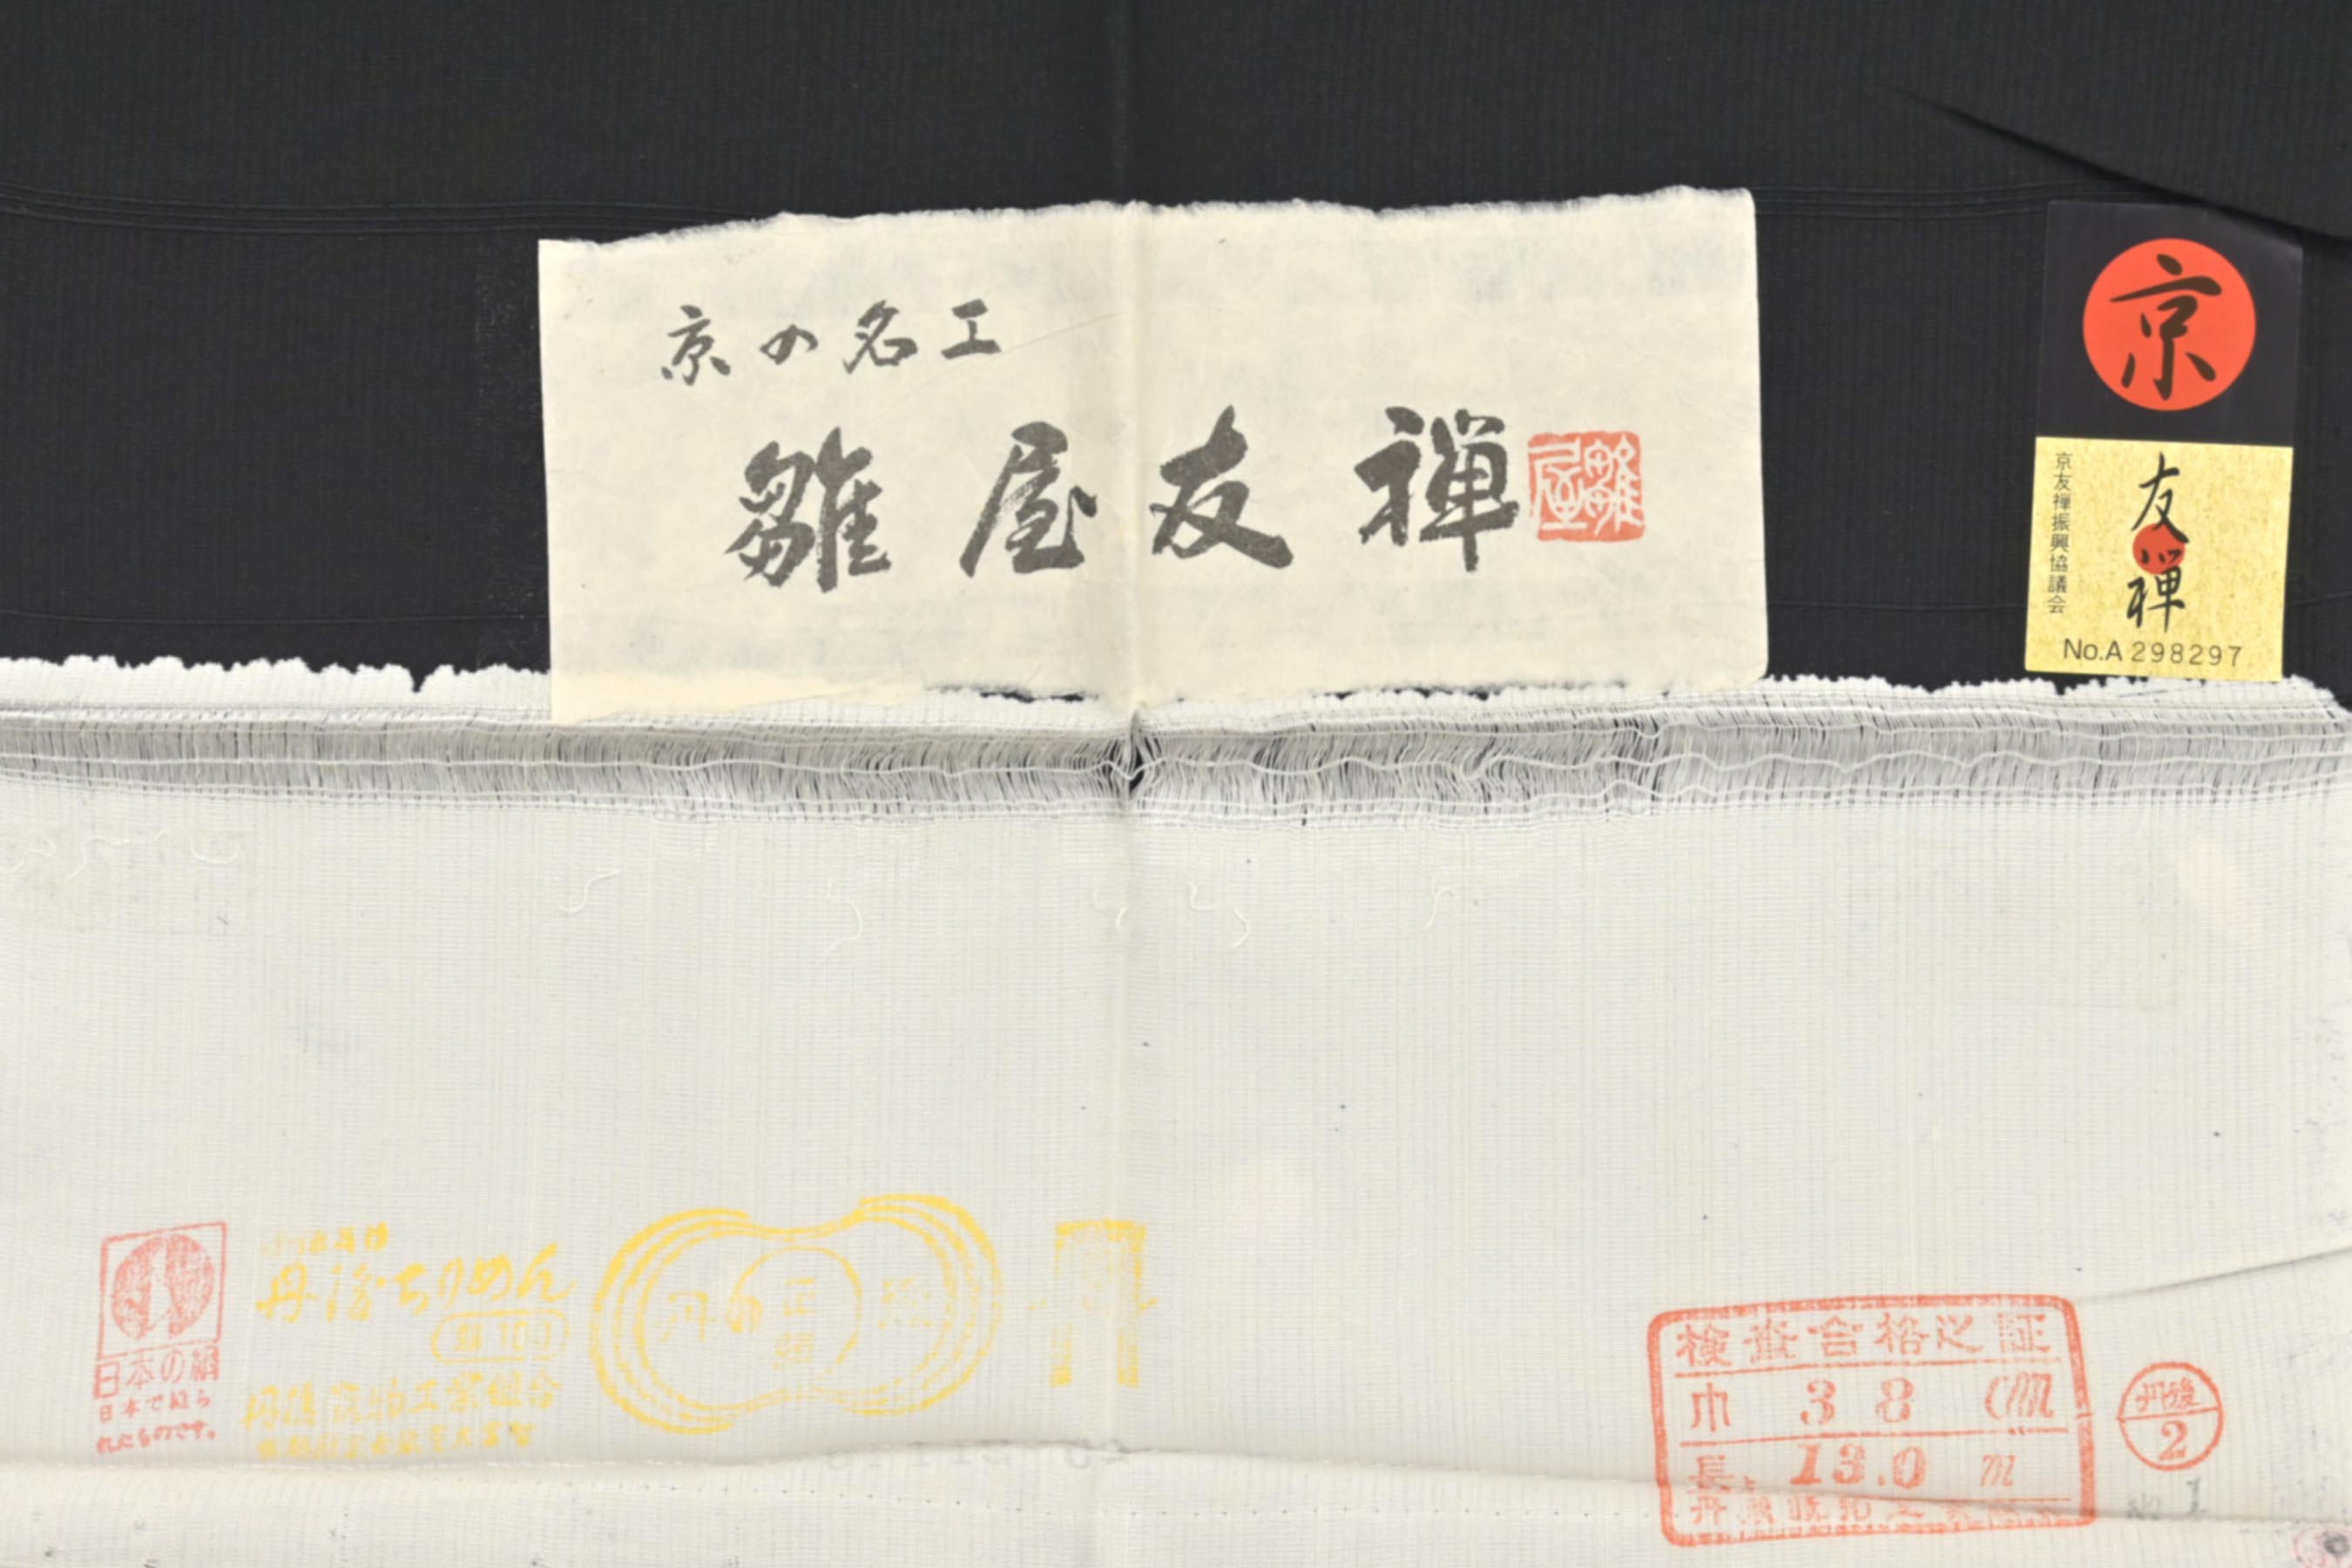 京の名工
雛屋友禅
雛屋
京
友禅
京友禅振興協議会
No.A 298297
日本の絹
日本で織ら
れたものです。
丹後ちりめん
絹100
丹後織物工業組合
検査合格之証
巾 38 cm
長 13.0 m
丹後
2
1